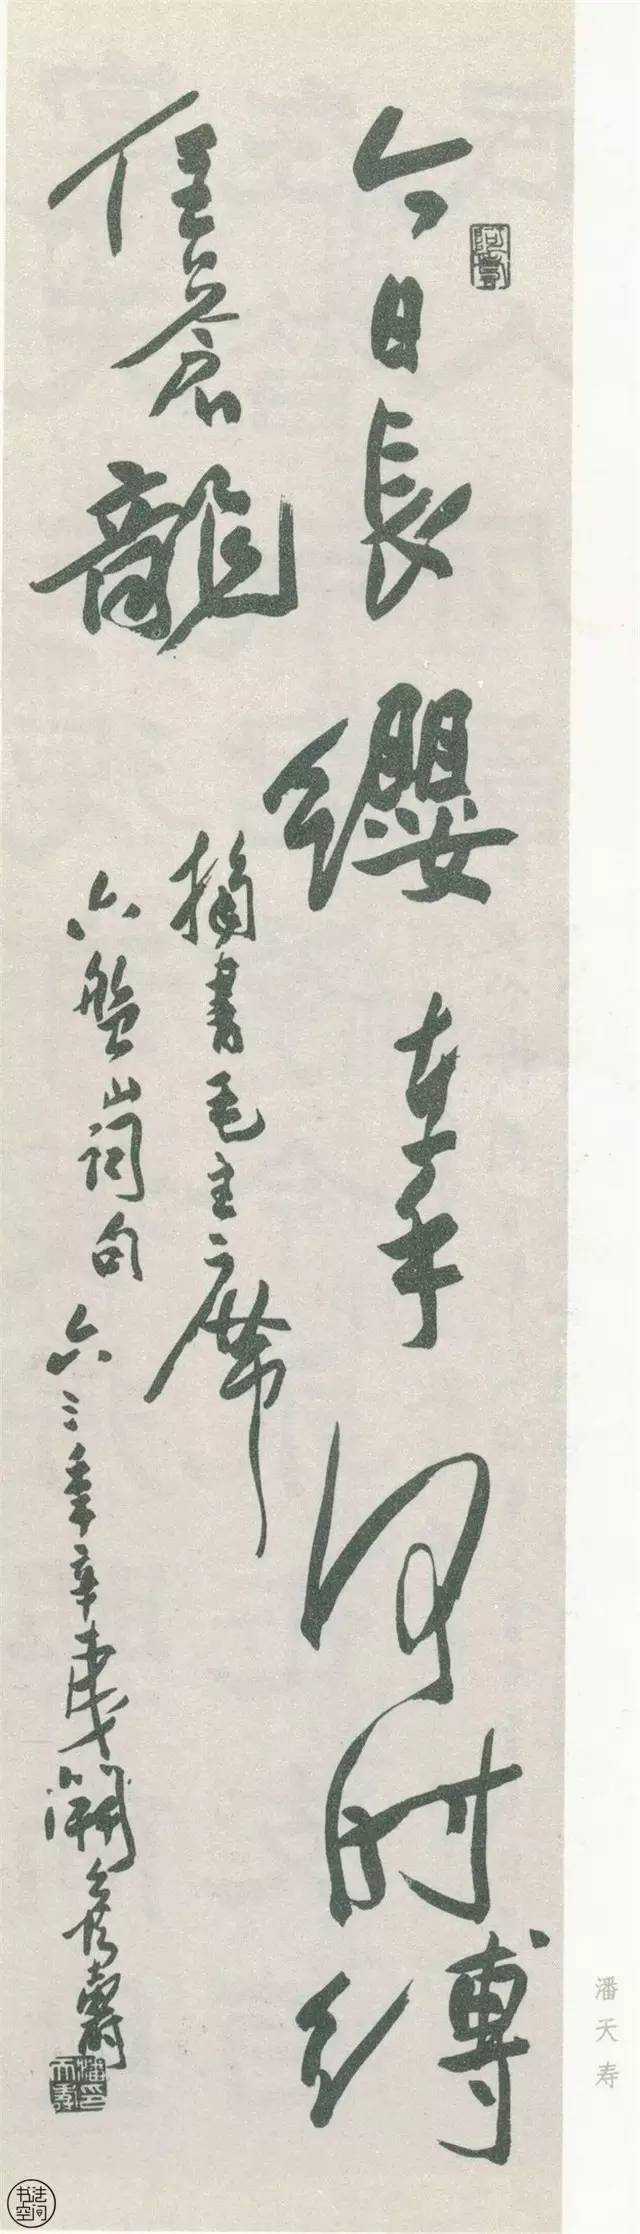 今日長纓在手何時縛
住蒼龍
摘書毛主席
六盤山詞句 六三年辛 壽
阿壽
潘天壽印
潘天寿
书法空间